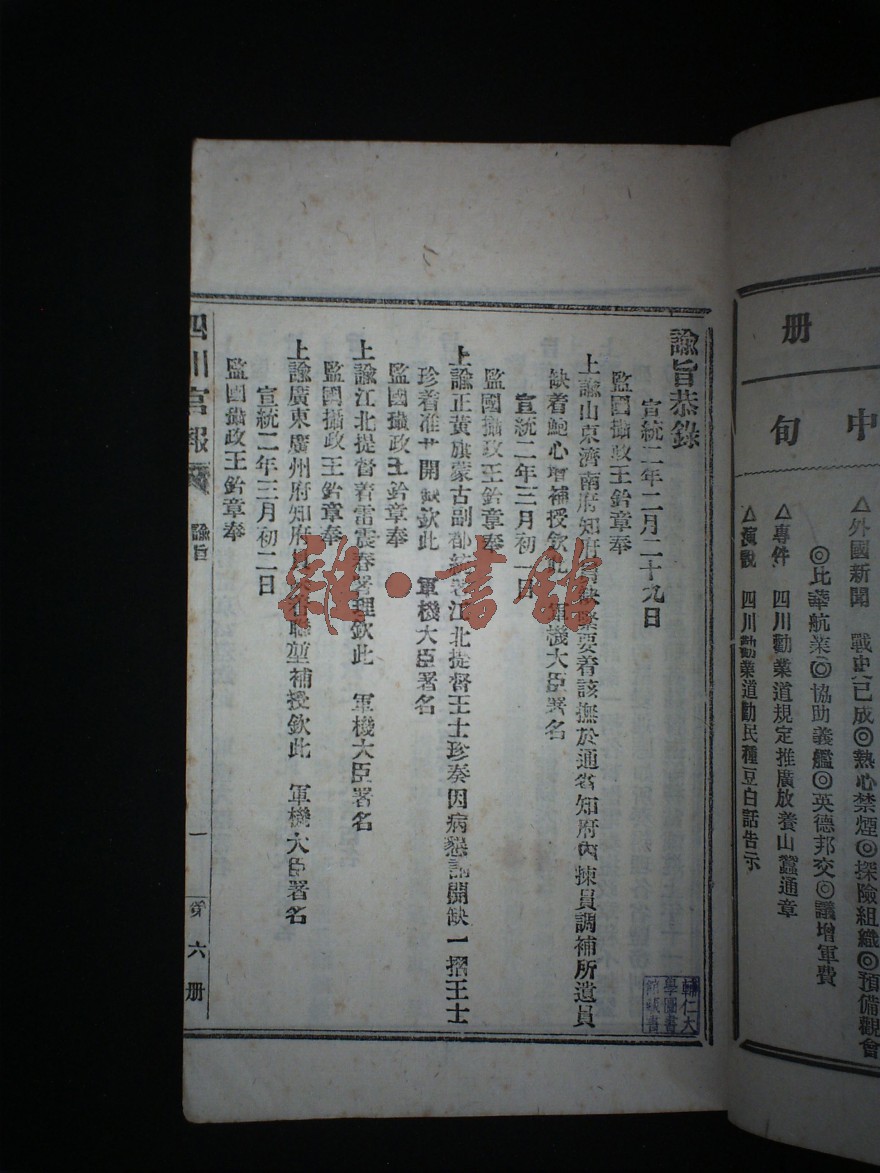 册
中旬
△外國新聞　戰史已成◎熱心禁煙◎探險組織◎預備觀會
◎比華航業◎協助義艦◎英德邦交◎議增軍費
△專件　四川勸業道規定推廣放養山蠶通章
△演說　四川勸業道勸民種豆白話告示
諭旨恭錄
宣統二年二月二十九日
監國攝政王鈐章奉
上諭山東濟南府知府員缺緊要着該撫於通省知府內揀員調補所遺員
缺着鮑心增補授欽此　軍機大臣署名
宣統二年三月初一日
監國攝政王鈐章奉
上諭正黃旗蒙古副都統著江北提督王士珍奏因病懇請開缺一摺王士
珍着准其開缺欽此　軍機大臣署名
監國攝政王鈐章奉
上諭江北提督着雷震春署理欽此　軍機大臣署名
監國攝政王鈐章奉
上諭廣東廣州府知府員缺着聯堃補授欽此　軍機大臣署名
宣統二年三月初二日
監國攝政王鈐章奉
四川官報　諭旨　一　第六册
輔仁大
學圖書
館藏書
雜·書館